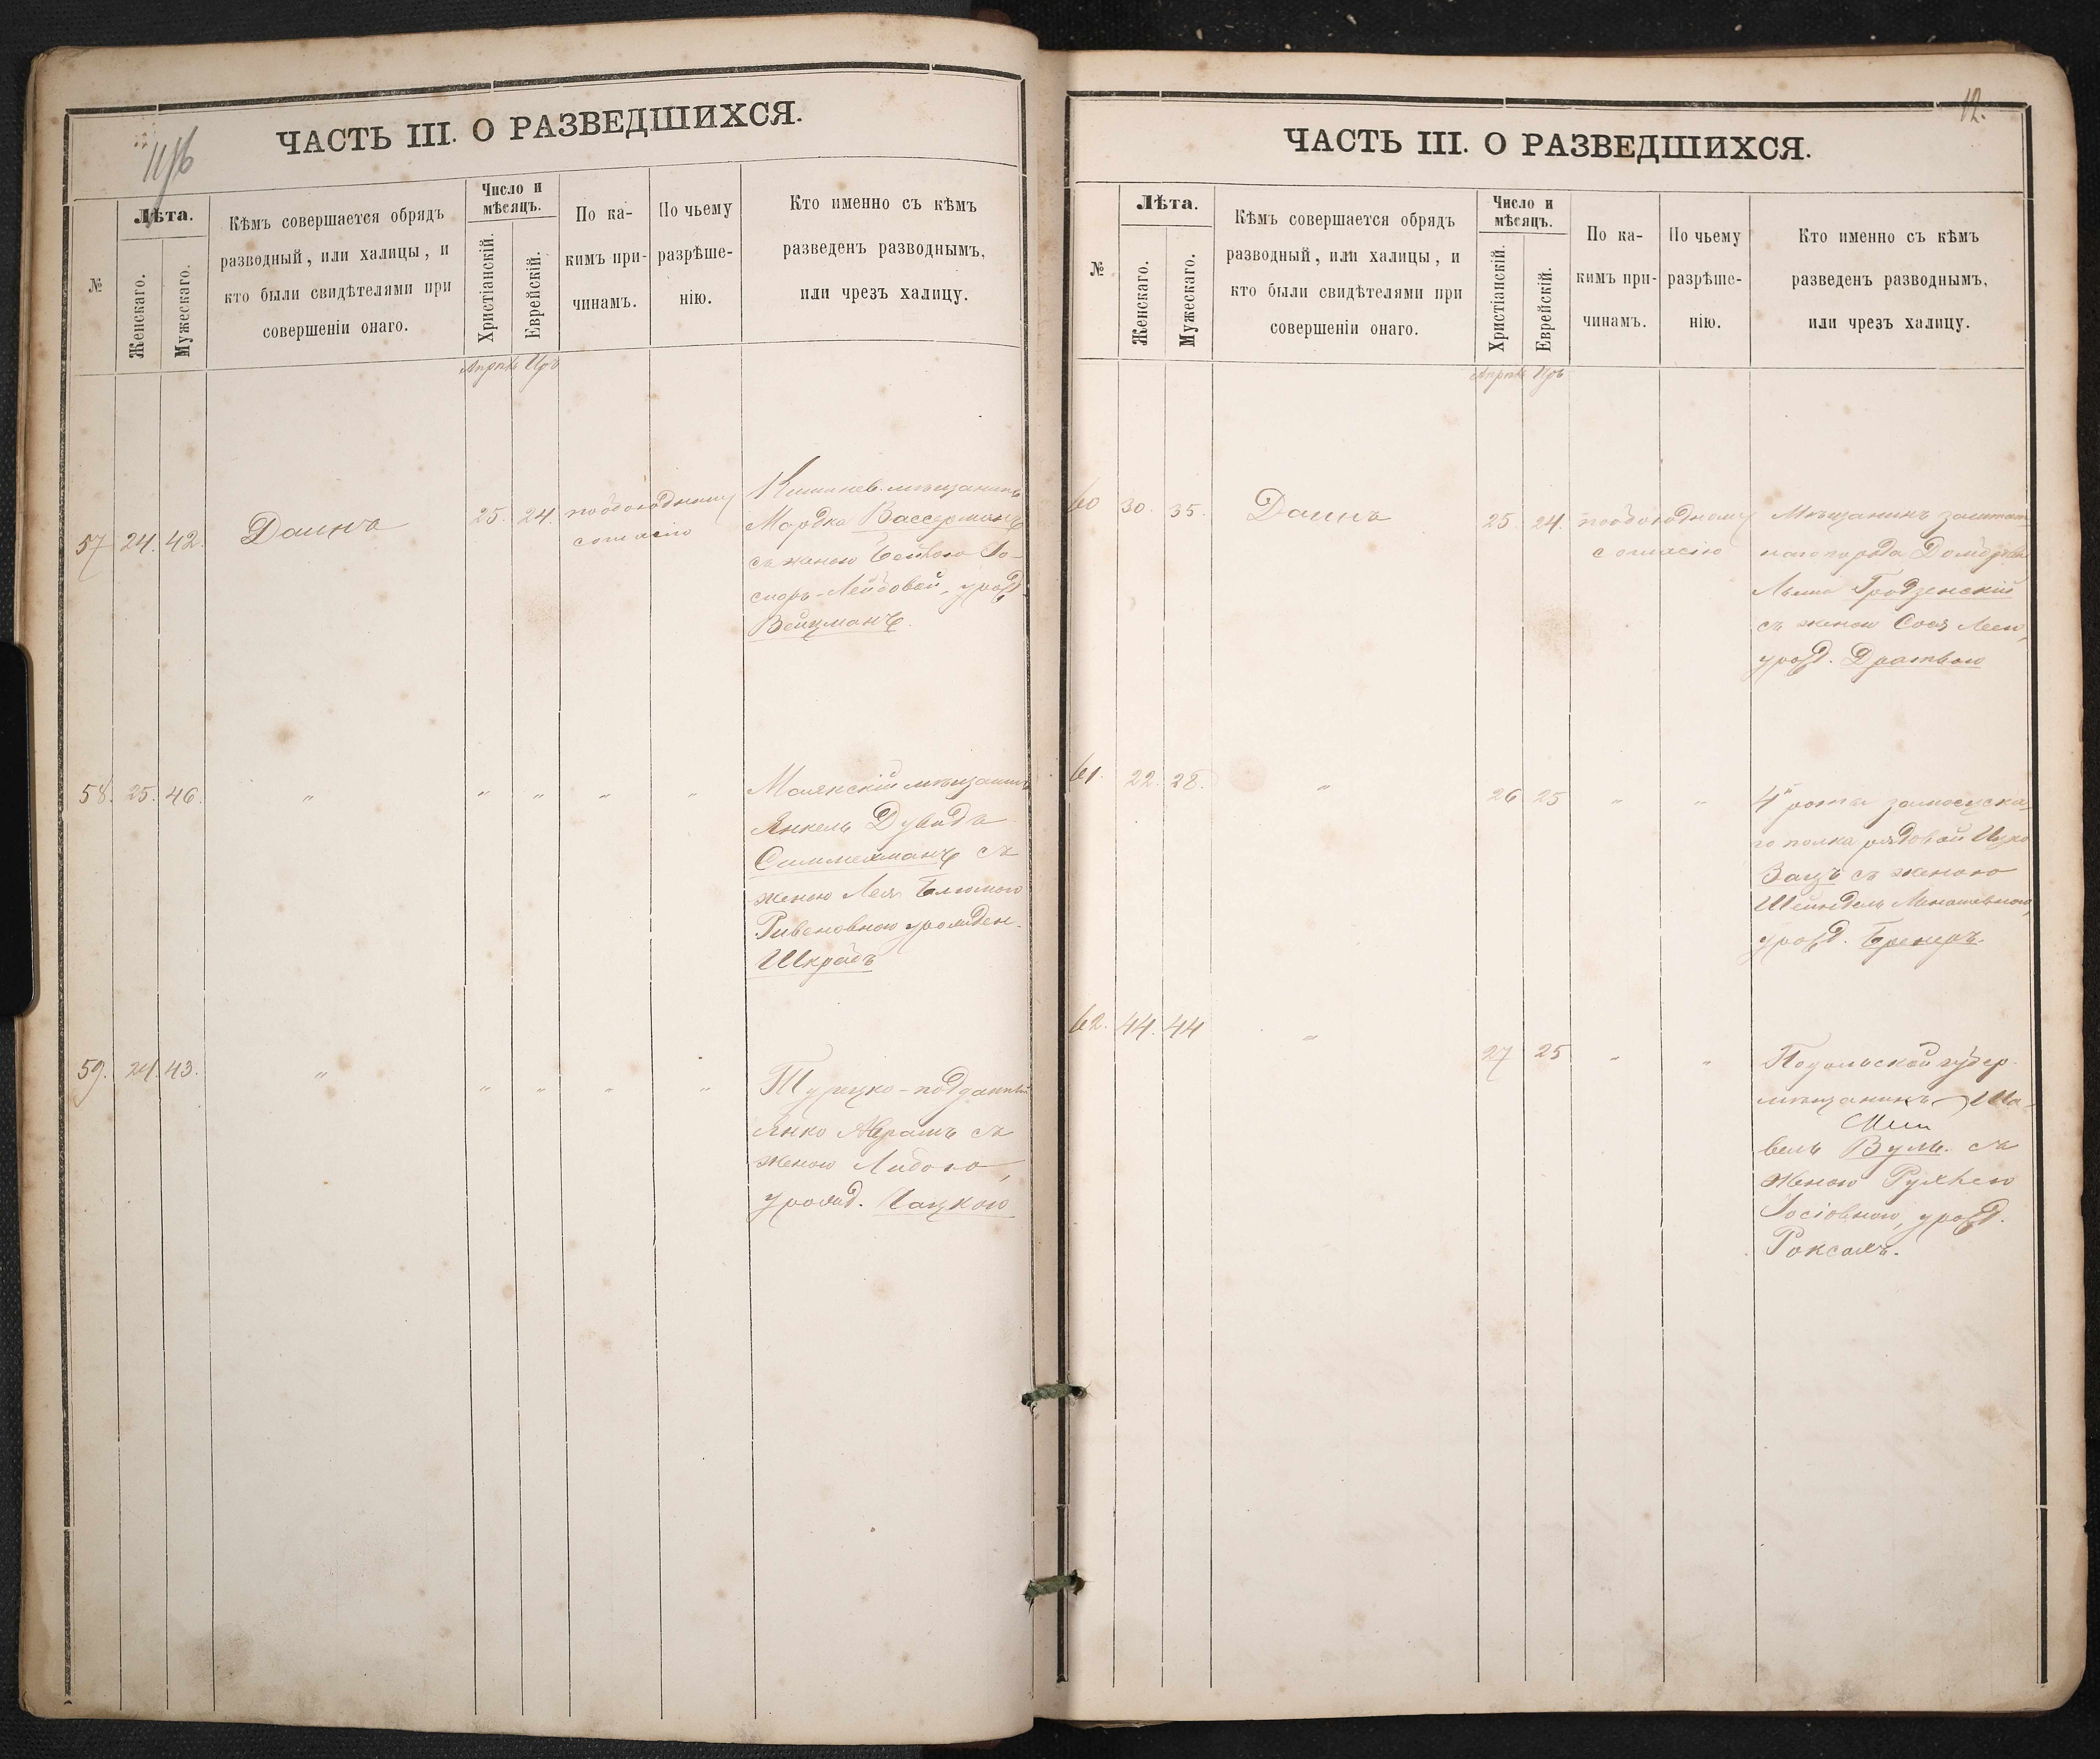 ЧАСТЬ III. О РАЗВЕДШИХСЯ.
№
Лѣта.
Женскаго.
Мужескаго.
Кѣмъ совершается обрядъ
разводный, или халицы, и
кто были свидѣтелями при
совершеніи онаго.
Число и
мѣсяцъ.
Христіанскій.
Еврейскій.
По ка-
кимъ при-
чинамъ.
По чьему
разрѣше-
нію.
Кто именно съ кѣмъ
разведенъ разводнымъ,
или чрезъ халицу.
Апрѣль Іръ
57 24. 42. Даинъ 25. 24. по обоюдному
согласію
Кишинев. мѣщанинъ
Мордко Вассерманъ
съ женою
Лейбовой, урожд.
Вейцманъ.
58. 25. 46. " " " " "
мѣщанинъ
Янкель Дувидъ
съ
женою Лея Блюмою
Ривеновною урожден.
Шкрабъ
59. 24. 43. " " " " "
Турецко-подданный
Янко Абрамъ съ
женою Либою,
урожд. Кацкою
12.
ЧАСТЬ III. О РАЗВЕДШИХСЯ.
№
Лѣта.
Женскаго.
Мужескаго.
Кѣмъ совершается обрядъ
разводный, или халицы, и
кто были свидѣтелями при
совершеніи онаго.
Число и
мѣсяцъ.
Христіанскій.
Еврейскій.
По ка-
кимъ при-
чинамъ.
По чьему
разрѣше-
нію.
Кто именно съ кѣмъ
разведенъ разводнымъ,
или чрезъ халицу.
Апрѣль Іръ
60 30. 35. Даинъ 25. 24. по обоюдному
согласію
Мѣщанинъ заштат
наго города
Гродзенскій
съ женою Соея Леею,
урожд. Дратвою
61. 22. 28. " 26 25 " "
4й роты
го полка рядовой Ицко
Зацъ съ женою
Шейндель
урожд. Бренеръ.
62. 44. 44 " 27 25 " "
Подольской губер.
мѣщанинъ Ша-
вель Вулъ. съ
женою Рухлею
Іосіовною, урожд.